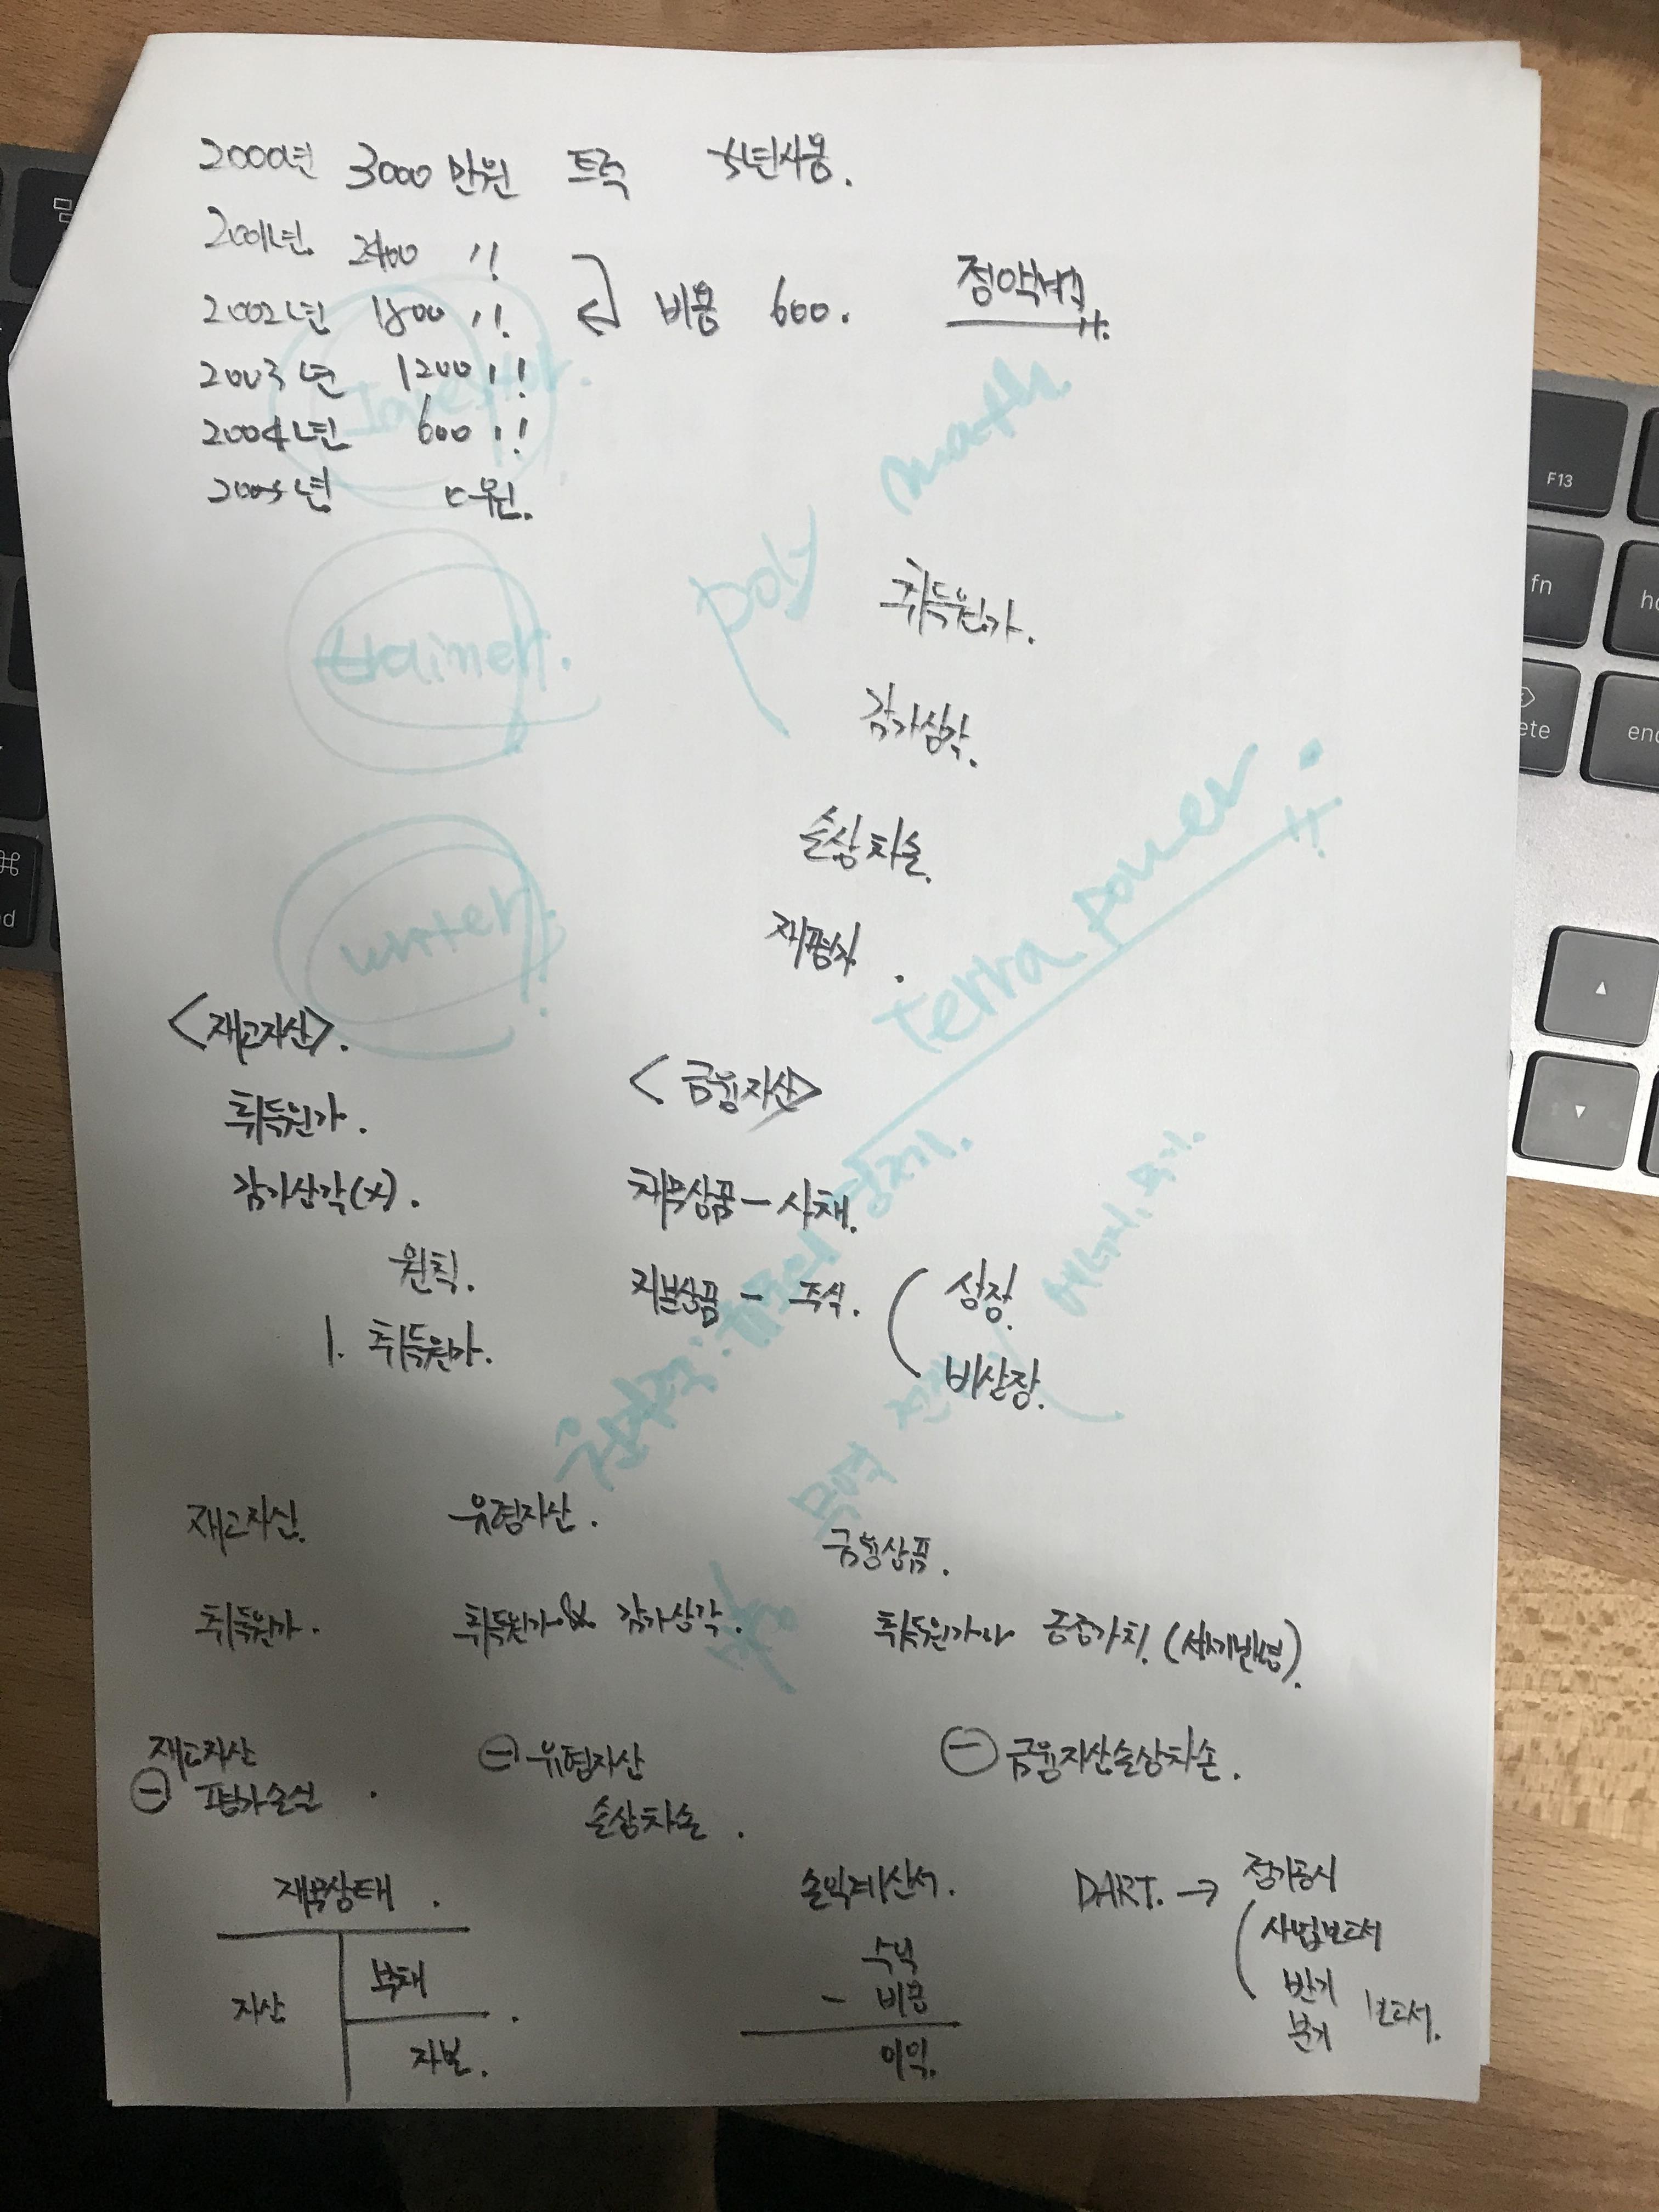 2000년 3000만원 트럭 5년사용.
2001년 2400 〃
2002년 1800 〃 비용 600. 정액법.
2003년 1200 〃
2004년 600 〃
2005년 0원.
Investor.
math
poly
trainer.
writer.
terra power
취득원가.
감가상각.
손상차손.
재평가.
<재고자산>.
취득원가.
감가상각(x).
원칙.
1. 취득원가.
<금융자산>
채무상품 - 사채.
지분상품 - 주식.
상장.
비상장.
재고자산. 유형자산. 금융상품.
취득원가. 취득원가 & 감가상각. 취득원가나 공정가치. (시가반영).
재고자산
⊖ 평가손실.
⊖ 유형자산
손상차손.
⊖ 금융자산손상차손.
재무상태.
자산 부채
자본.
손익계산서.
수익
- 비용
이익.
DART. → 정기공시
사업보고서
반기
분기 보고서.